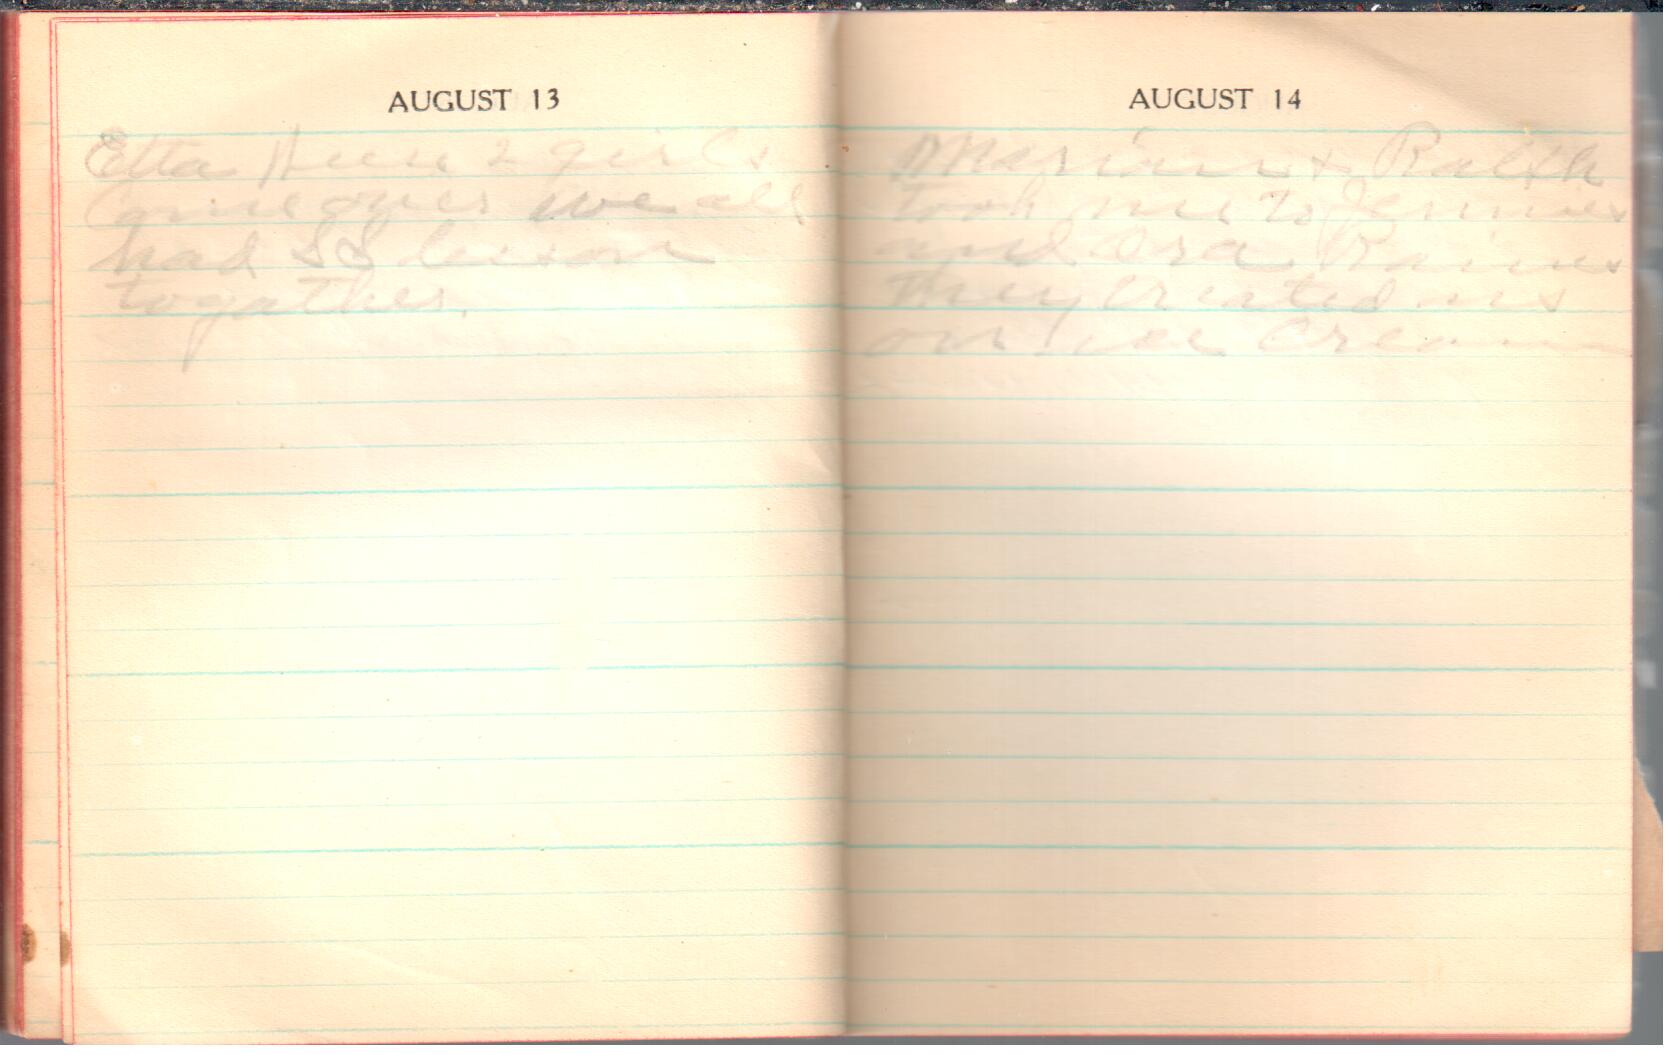 AUGUST 13
Etta 2 girls
Come over we all
had SS lesson
togather.
AUGUST 14
Marian + Ralph
took me to Jennies
and Ora
They treated us
on ice cream